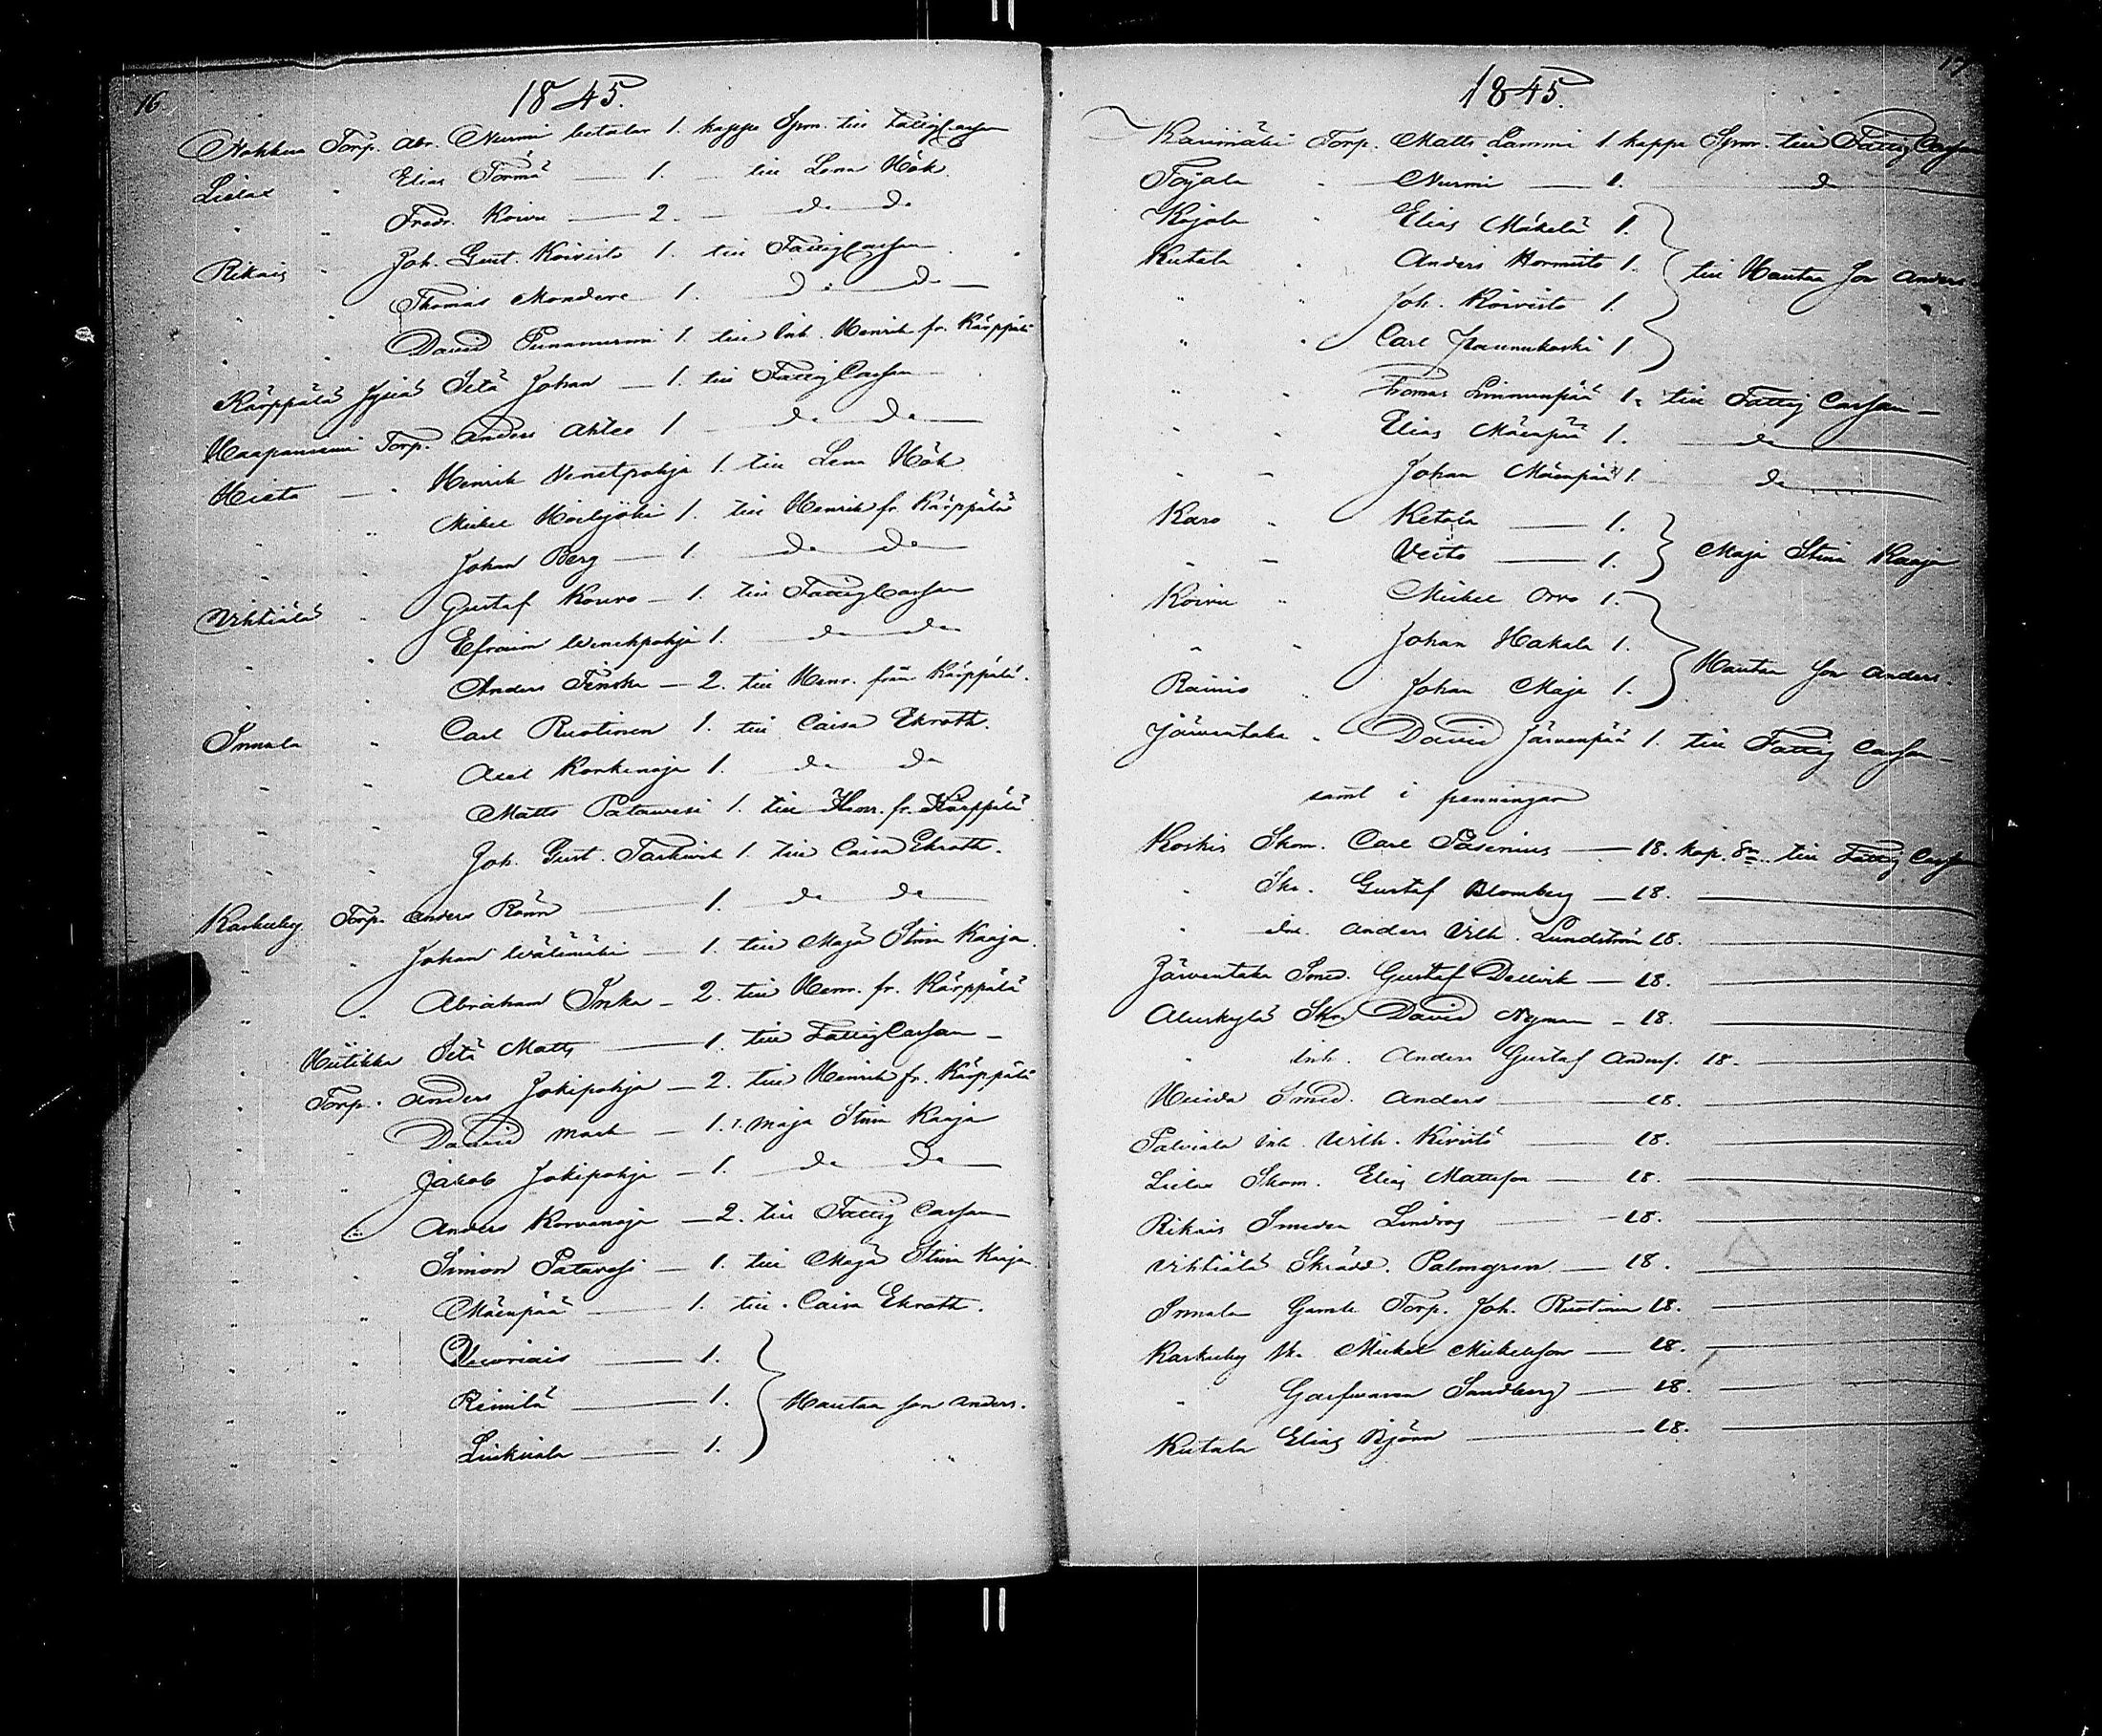 16
1845.
Nokkua Torp. Abr. Nurmi betalar 1. kappe Spm. till FattigCassan
Lielax " Elias Tormä — 1. — till Lena Hök
" " Fredr. Koivu — 2. — do do
Rikais " Joh. Gust. Koivisto 1. till FattigCassan
" " Thomas Mondere 1. do do —
" " David Punanurmi 1. till Inh. Henrik fr. Kärppälä
Kärppälä Jyriä Setä Johan — 1. till FattigCassan
Haapaniemi Torp. Anders Ahtee 1 do do
Hieta — " Henrik Venetpohja 1. till Lena Hök
" " Mickel Hörlyjöki 1. till Henrik fr. Kärppälä
" " Johan Berg — 1. do do
Vihtiälä " Gustaf Kouvo — 1. till FattigCassan
" " Efraim Wenehpohja 1. do do
" " Anders Finska — 2. till Henr. från Kärppälä.
Innala " Carl Ruotinen 1. till Caisa Ekroth.
" " Axel Korkenoja 1. do do
" " Matts Patavesi 1. till Henr. fr. Kärppälä
" " Joh. Gust. Taskinen 1. till Caisa Ekroth.
Karkuby Torp. Anders Rönn — 1. do do
" " Johan Wälimäki — 1. till Maja Stina Kaaja.
" " Abraham Inka — 2. till Henr. fr. Kärppälä
" Hiitikka Setä Matts — 1. till FattigCassan —
" Torp. Anders Jokipohja — 2. till Henrik fr. Kärppälä
" David Mark — 1. t. Maja Stina Kaaja
" " Jakob Jokipohja — 1. do do
" " Anders Korvenoja — 2. till Fattig Cassan
" " Simon Patavesi — 1. till Maja Stina Kaaja.
" " Mäenpää — 1. till Caisa Ekroth.
" " — 1.
" " Reinilä — 1. } Hautaa son Anders.
" " Liukuala — 1.
17
1845.
Karimäki Torp. Matts Lammi 1 kappe Spm. till Fattig Cassan
Tojala " Nurmi — 1. do
Kojola " Elias Mäkelä 1.
Kutala " Anders Hormisto 1. } till Hautaa son Anders
" " Joh. Koivisto 1.
" " Carl Haunukoski 1.
" " Thomas Linnunpää 1. till Fattig Cassan —
" " Elias Mäenpää 1. do
" — Johan Mäenpää 1. do
Karo " Ketola — 1.
" — Veito — 1. } Maja Stina Kaaja
Koivu " Mickel Orro 1.
" " Johan Hakala 1. } Hautaa son Anders.
Rainio " Johan Maja 1.
Järventaka " David Järvenpää 1. till Fattig Cassan —
samt i penningar
Koskis Skom. Carl Fasenius — 18. kop. Sr. till Fattig Cassan
" Skr. Gustaf Blomberg — 18.
" do. Anders Vilh. Lundström 18.
Järventaka Smed. Gustaf Dellvik — 18.
Aluskylä Skr. David Nyman — 18.
" Inh. Anders Gustaf Anderss. 18.
Huida Smed. Anders — 18.
Palviala Inh. Wilh. Kivistö — 18.
Lielax Skom. Elias Mattsson — 18.
Rikais Smeden Lindros — 18.
Vihtiälä Skrädd. Palmgren — 18.
Innala Gamle Torp. Joh. Ruotinen 18.
Karkuby Mickel Mickelsson — 18.
" Garfvaren Sandberg — 18.
Kutala Elias Björn — 18.